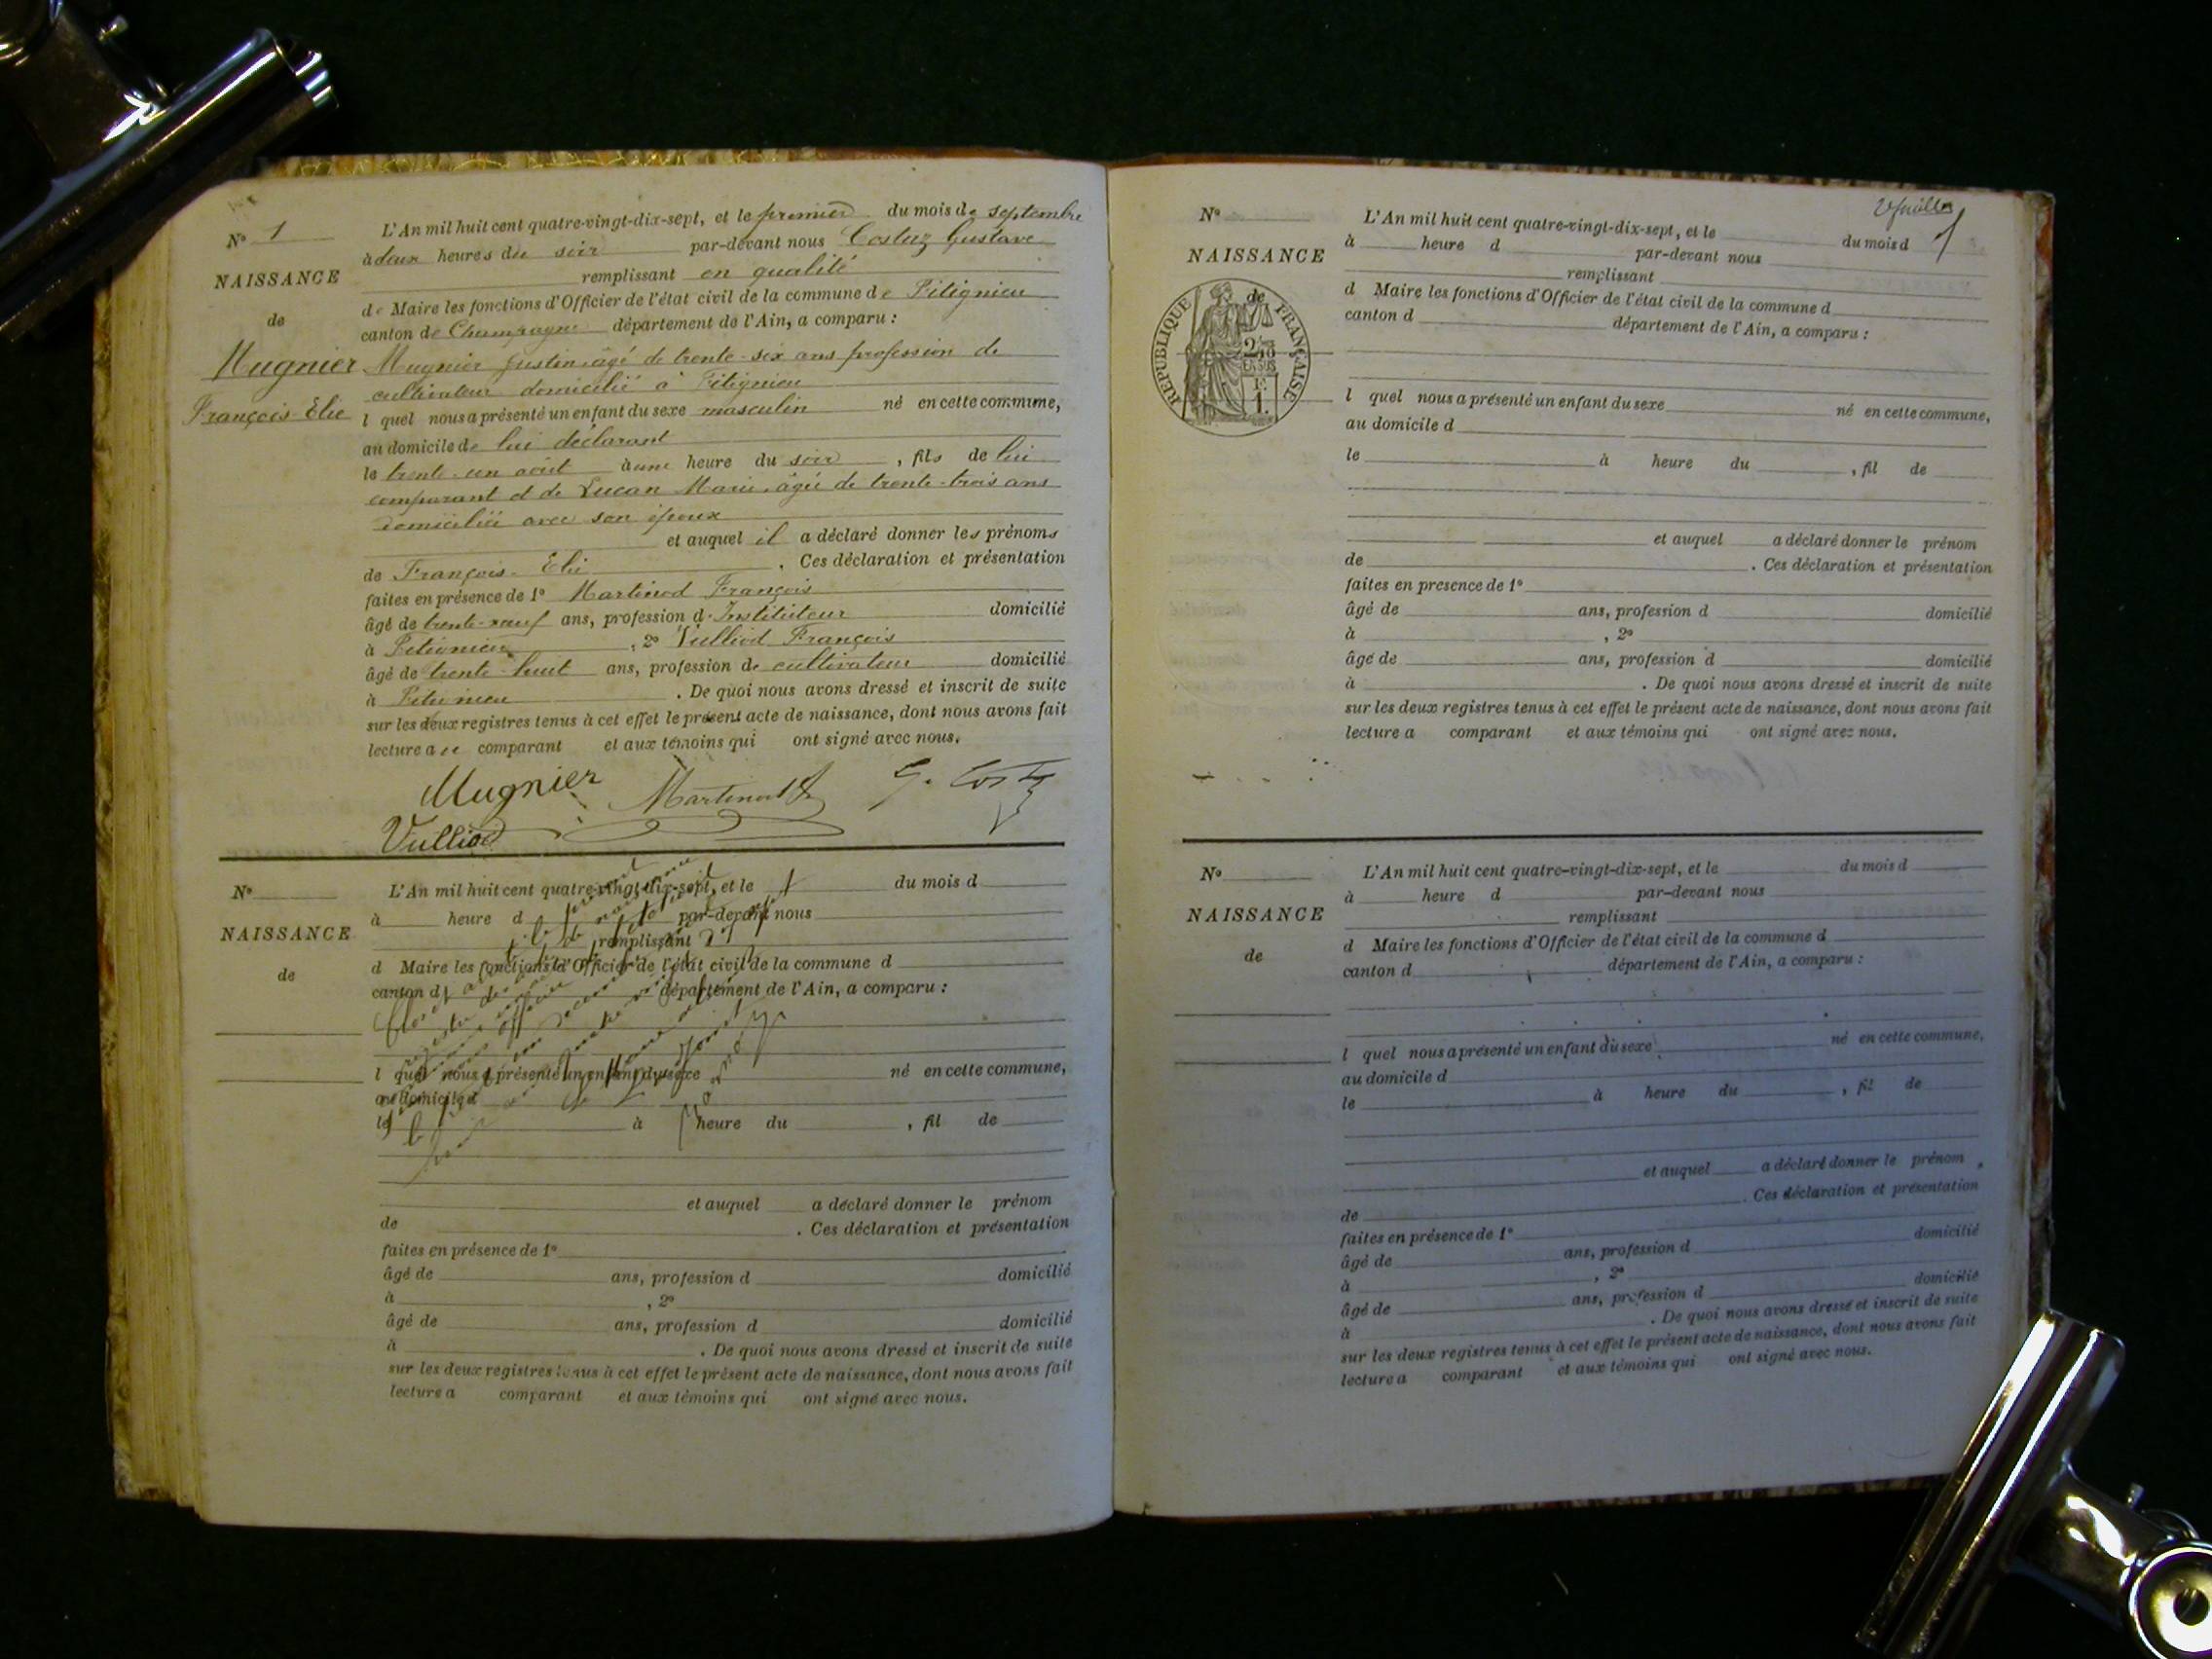 N° 1
NAISSANCE
de
Mugnier
François Elie
L'An mil huit cent quatre-vingt-dix-sept, et le premier du mois de septembre
à deux heures du soir par-devant nous Costaz Gustave
remplissant en qualité
de Maire les fonctions d'Officier de l'état civil de la commune de Fitignieu
canton de Champagne département de l'Ain, a comparu :
Mugnier Justin, âgé de trente-six ans profession de
cultivateur domicilié à Fitignieu
l quel nous a présenté un enfant du sexe masculin né en cette commune,
au domicile de lui déclarant
le trente-un août à une heure du soir, fils de lui
comparant et de Lucan Marie, agée de trente-trois ans
domiciliée avec son époux
et auquel il a déclaré donner les prénoms
de François-Elie. Ces déclaration et présentation
faites en présence de 1° Martinod François
âgé de trente-neuf ans, profession d'Instituteur domicilié
à Fitignieu, 2° Vulliod François
âgé de trente-huit ans, profession de cultivateur domicilié
à Fitignieu. De quoi nous avons dressé et inscrit de suite
sur les deux registres tenus à cet effet le présent acte de naissance, dont nous avons fait
lecture au comparant et aux témoins qui ont signé avec nous.
Mugnier Martinod G. Costaz
Vulliod
N°
NAISSANCE
de
L'An mil huit cent quatre-vingt-dix-sept, et le du mois d
à heure d par-devant nous
remplissant
d Maire les fonctions d'Officier de l'état civil de la commune d
canton d département de l'Ain, a comparu :
l quel nous a présenté un enfant du sexe né en cette commune,
au domicile d
le à heure du , fil de
et auquel a déclaré donner le prénom
de . Ces déclaration et présentation
faites en présence de 1°
âgé de ans, profession d domicilié
à , 2°
âgé de ans, profession d domicilié
à . De quoi nous avons dressé et inscrit de suite
sur les deux registres tenus à cet effet le présent acte de naissance, dont nous avons fait
lecture a comparant et aux témoins qui ont signé avec nous.
N°
NAISSANCE
de
REPUBLIQUE FRANÇAISE
L'An mil huit cent quatre-vingt-dix-sept, et le du mois d
à heure d par-devant nous
remplissant
d Maire les fonctions d'Officier de l'état civil de la commune d
canton d département de l'Ain, a comparu :
l quel nous a présenté un enfant du sexe né en cette commune,
au domicile d
le à heure du , fil de
et auquel a déclaré donner le prénom
de . Ces déclaration et présentation
faites en presence de 1°
âgé de ans, profession d domicilié
à , 2°
âgé de ans, profession d domicilié
à . De quoi nous avons dressé et inscrit de suite
sur les deux registres tenus à cet effet le présent acte de naissance, dont nous avons fait
lecture a comparant et aux témoins qui ont signé avec nous.
N°
NAISSANCE
de
L'An mil huit cent quatre-vingt-dix-sept, et le du mois d
à heure d par-devant nous
remplissant
d Maire les fonctions d'Officier de l'état civil de la commune d
canton d département de l'Ain, a comparu :
l quel nous a présenté un enfant du sexe né en cette commune,
au domicile d
le à heure du , fil de
et auquel a déclaré donner le prénom
de . Ces déclaration et présentation
faites en présence de 1°
âgé de ans, profession d domicilié
à , 2°
âgé de ans, profession d domicilié
à . De quoi nous avons dressé et inscrit de suite
sur les deux registres tenus à cet effet le présent acte de naissance, dont nous avons fait
lecture a comparant et aux témoins qui ont signé avec nous.